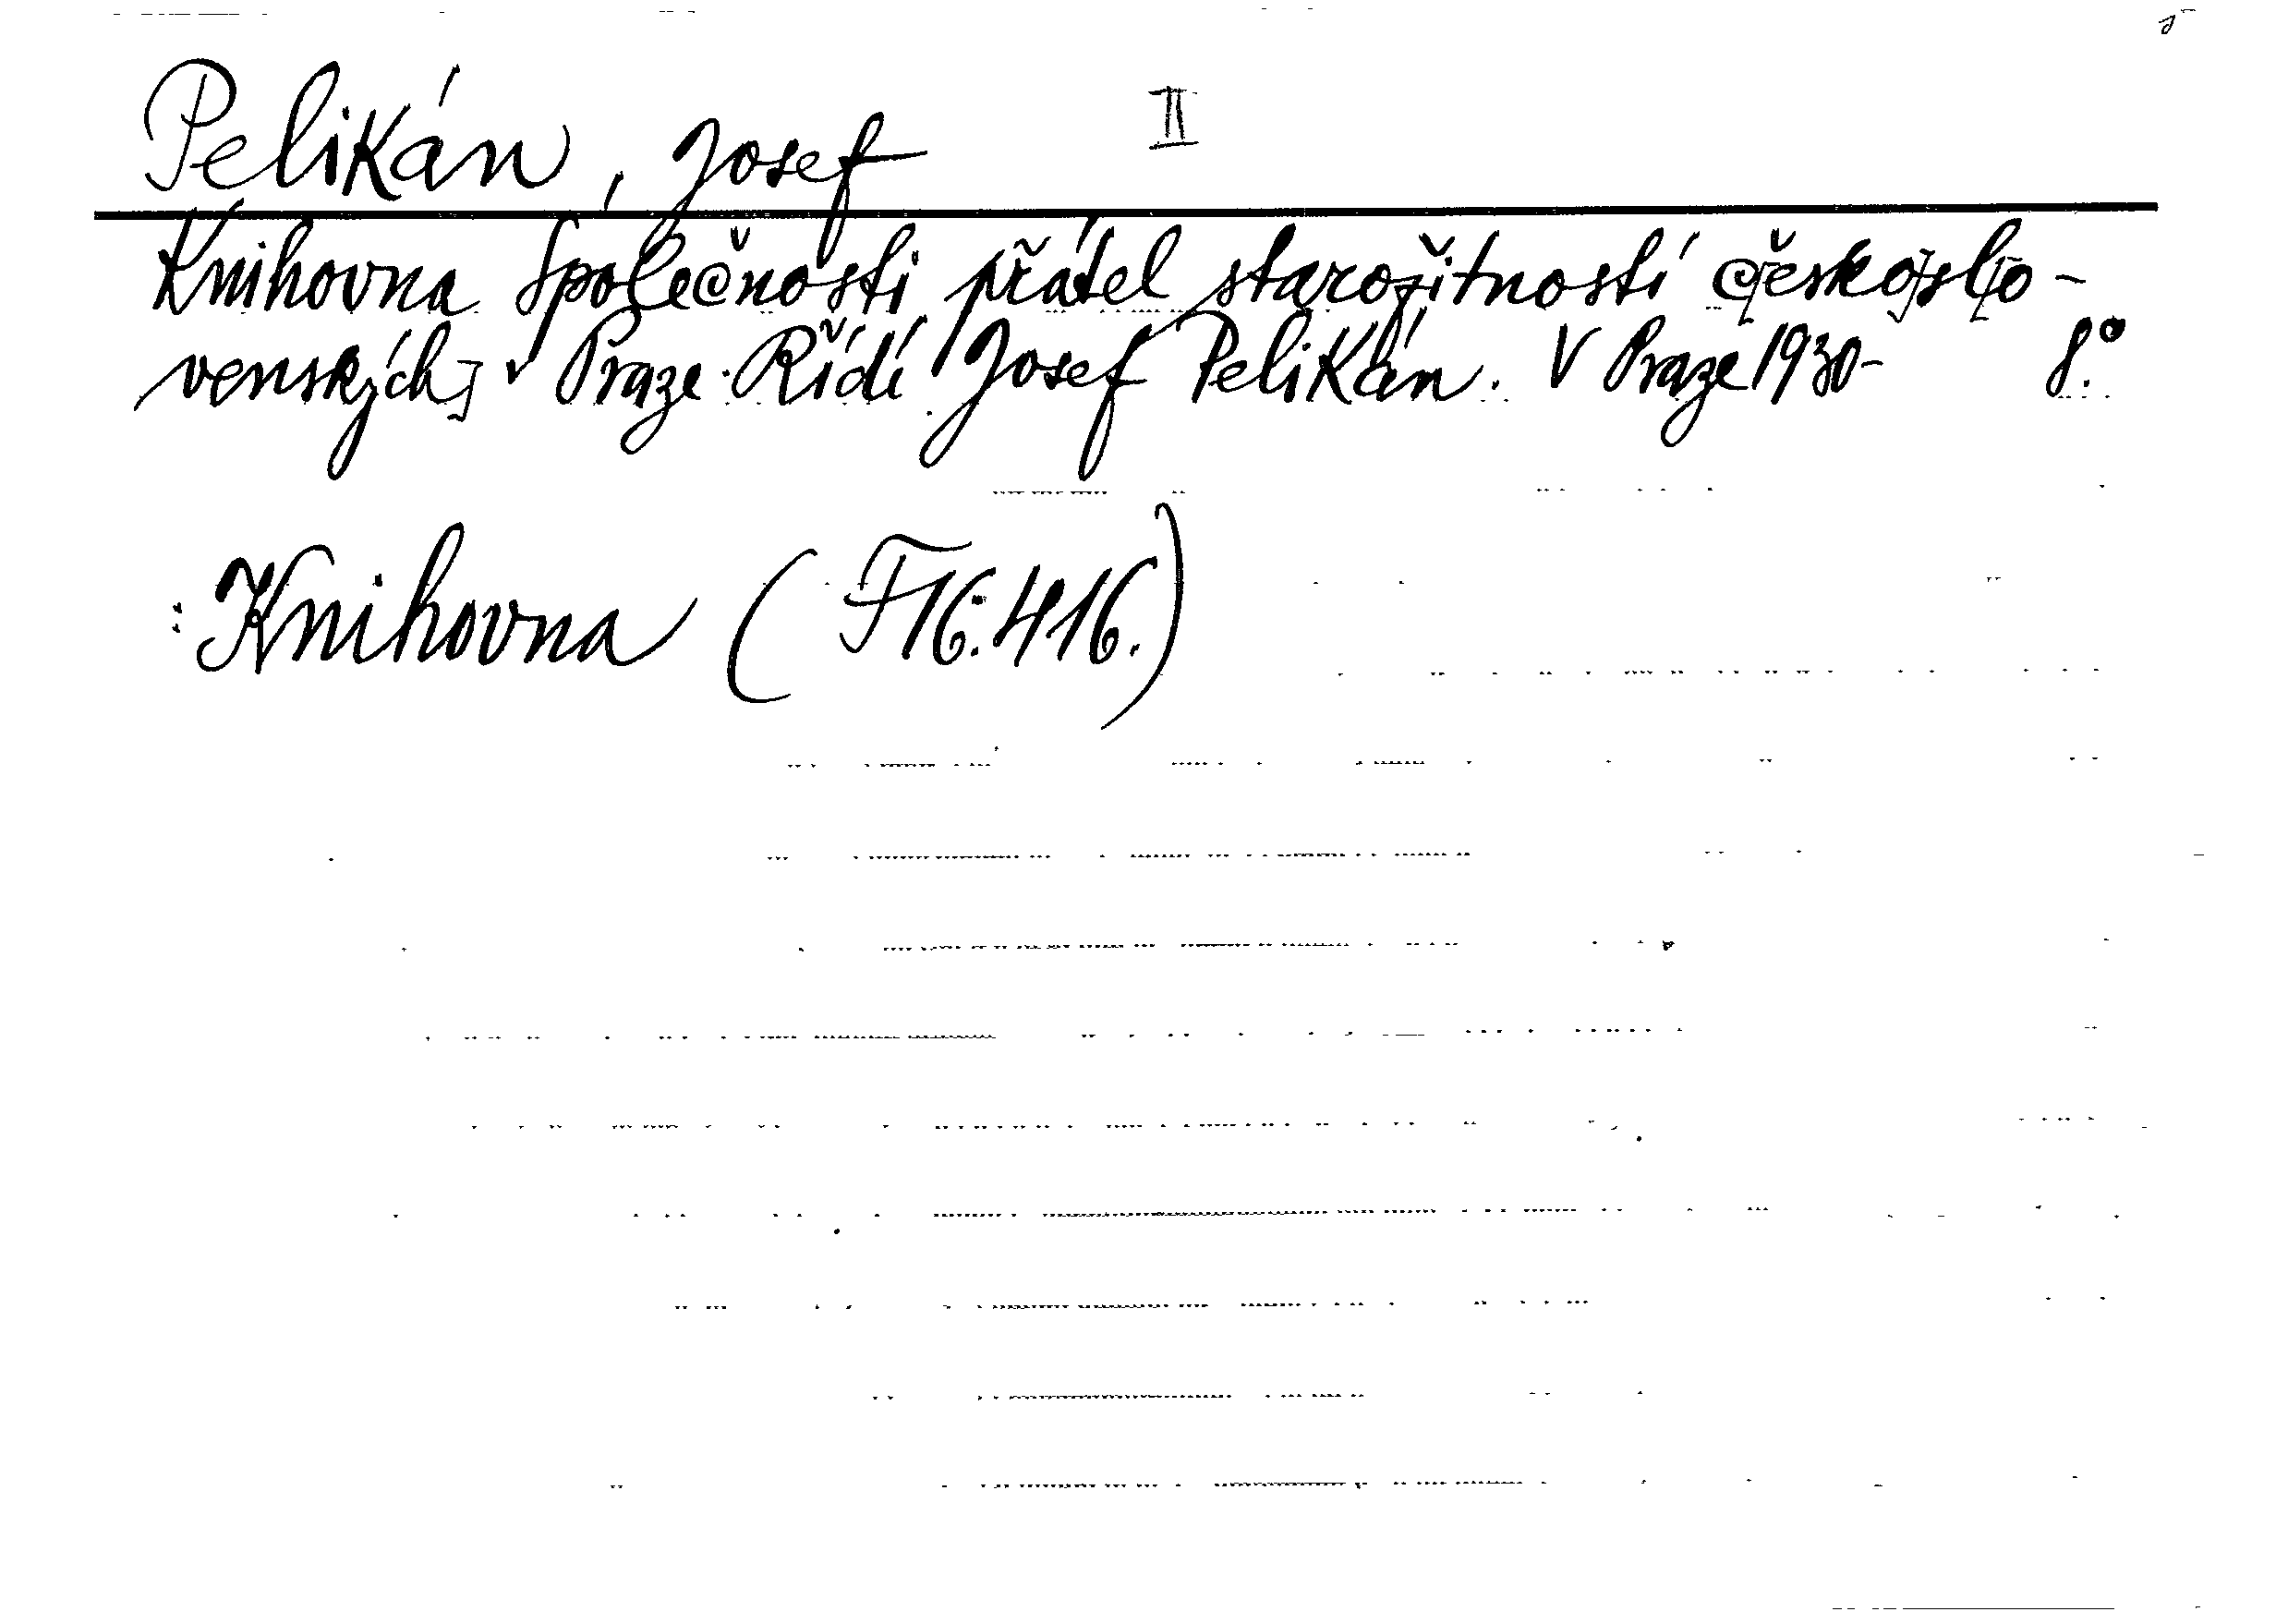 Pelikán, Josef II
Knihovna Společnosti přátel starožitností č[esko]sl[o-
venských] v Praze. Řídí Josef Pelikán. V Praze 1930- 8.°
: Knihovna (F 16: 416.)